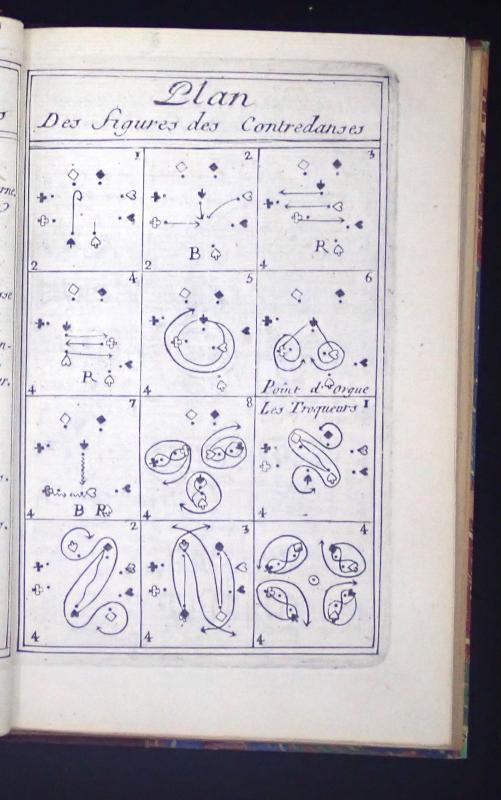 Plan
Des figures des Contredanses
1
2
2
2
B
3
4
R
4
4
R
5
4
6
Point d'orgue
7
4
B R
8
4
Les Troqueurs 1
4
2
4
3
4
4
4